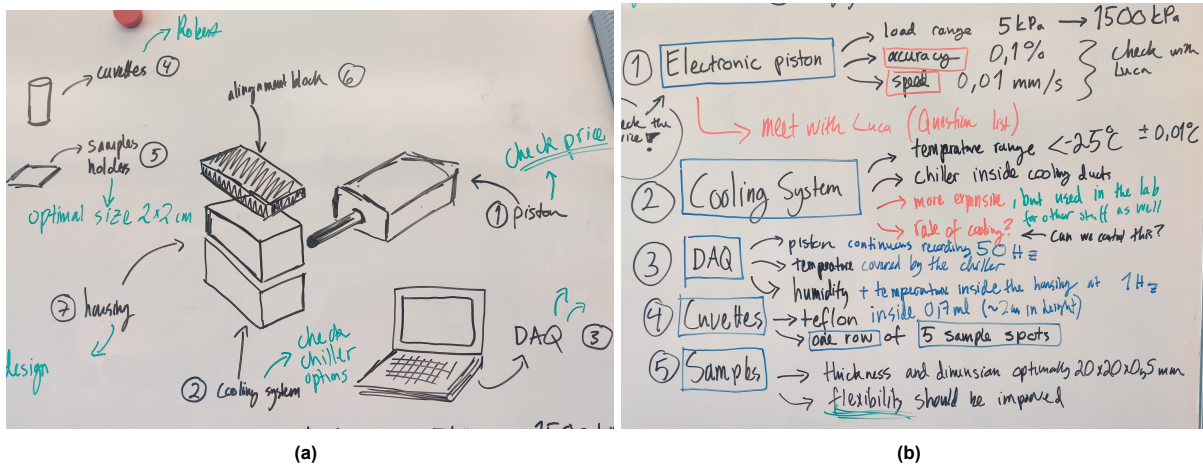 Robert
cuvettes 4
alingnment block 6
samples
holders 5
optimal size 2x2 cm
check price
1 piston
7 housing
design
check
chiller
options
2 cooling system
DAQ 3
(a)
1 Electronic piston
load range 5 kPa → 1500 kPa
accuracy 0,1%
speed 0,01 mm/s
check with
Luca
the
meet with Luca (Question list)
2 Cooling System
temperature range <-25°C ± 0,01°C
chiller inside cooling ducts
more expensive, but used in the lab
for other stuff as well
rate of cooling? ← Can we control this?
3 DAQ
piston continuous recording 50 Hz
temperature covered by the chiller
humidity + temperature inside the housing at 1 Hz
4 Cuvettes
teflon inside 0,7 ml (~2cm in height)
one row of 5 sample spots
5 Samples
thickness and dimension optimally 20x20x0,5 mm
flexibility should be improved
(b)